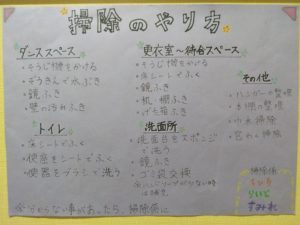 掃除のやり方
ダンススペース
・そうじ機をかける
・ぞうきんで水ぶき
・鏡ふき
・壁の汚れふき
トイレ
・床シートでふく
・便座をシートでふく
・便器をブラシで洗う
更衣室〜待合スペース
・そうじ機をかける
・床シートでふく
・鏡ふき
・机・棚ふき
・げた箱ふき
洗面所
・洗面台をスポンジ
で洗う
・鏡ふき
・ゴミ袋交換
その他
・ハンガーの整理
・本棚の整理
・窓わく掃除
掃除係
すみれ
※分からない事があったら、掃除係に